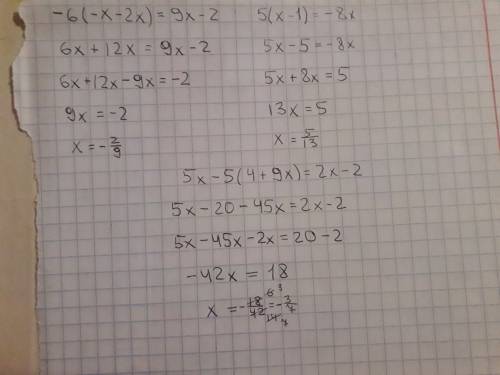 -6(-x-2x)=9x-2
6x+12x=9x-2
6x+12x-9x=-2
9x=-2
x=-2/9
5(x-1)=-8x
5x-5=-8x
5x+8x=5
13x=5
x=5/13
5x-5(4+9x)=2x-2
5x-20-45x=2x-2
5x-45x-2x=20-2
-42x=18
x=-18/42=-3/7